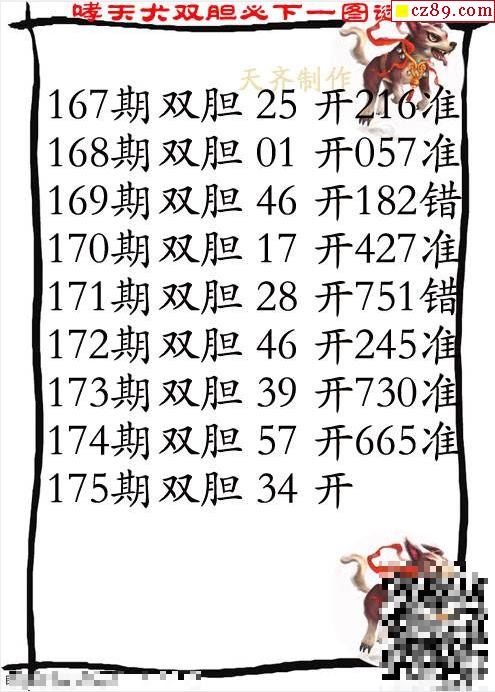 哮天犬双胆必下一图谜
cz89.com
天齐制作
167期双胆 25 开216准
168期双胆 01 开057准
169期双胆 46 开182错
170期双胆 17 开427准
171期双胆 28 开751错
172期双胆 46 开245准
173期双胆 39 开730准
174期双胆 57 开665准
175期双胆 34 开